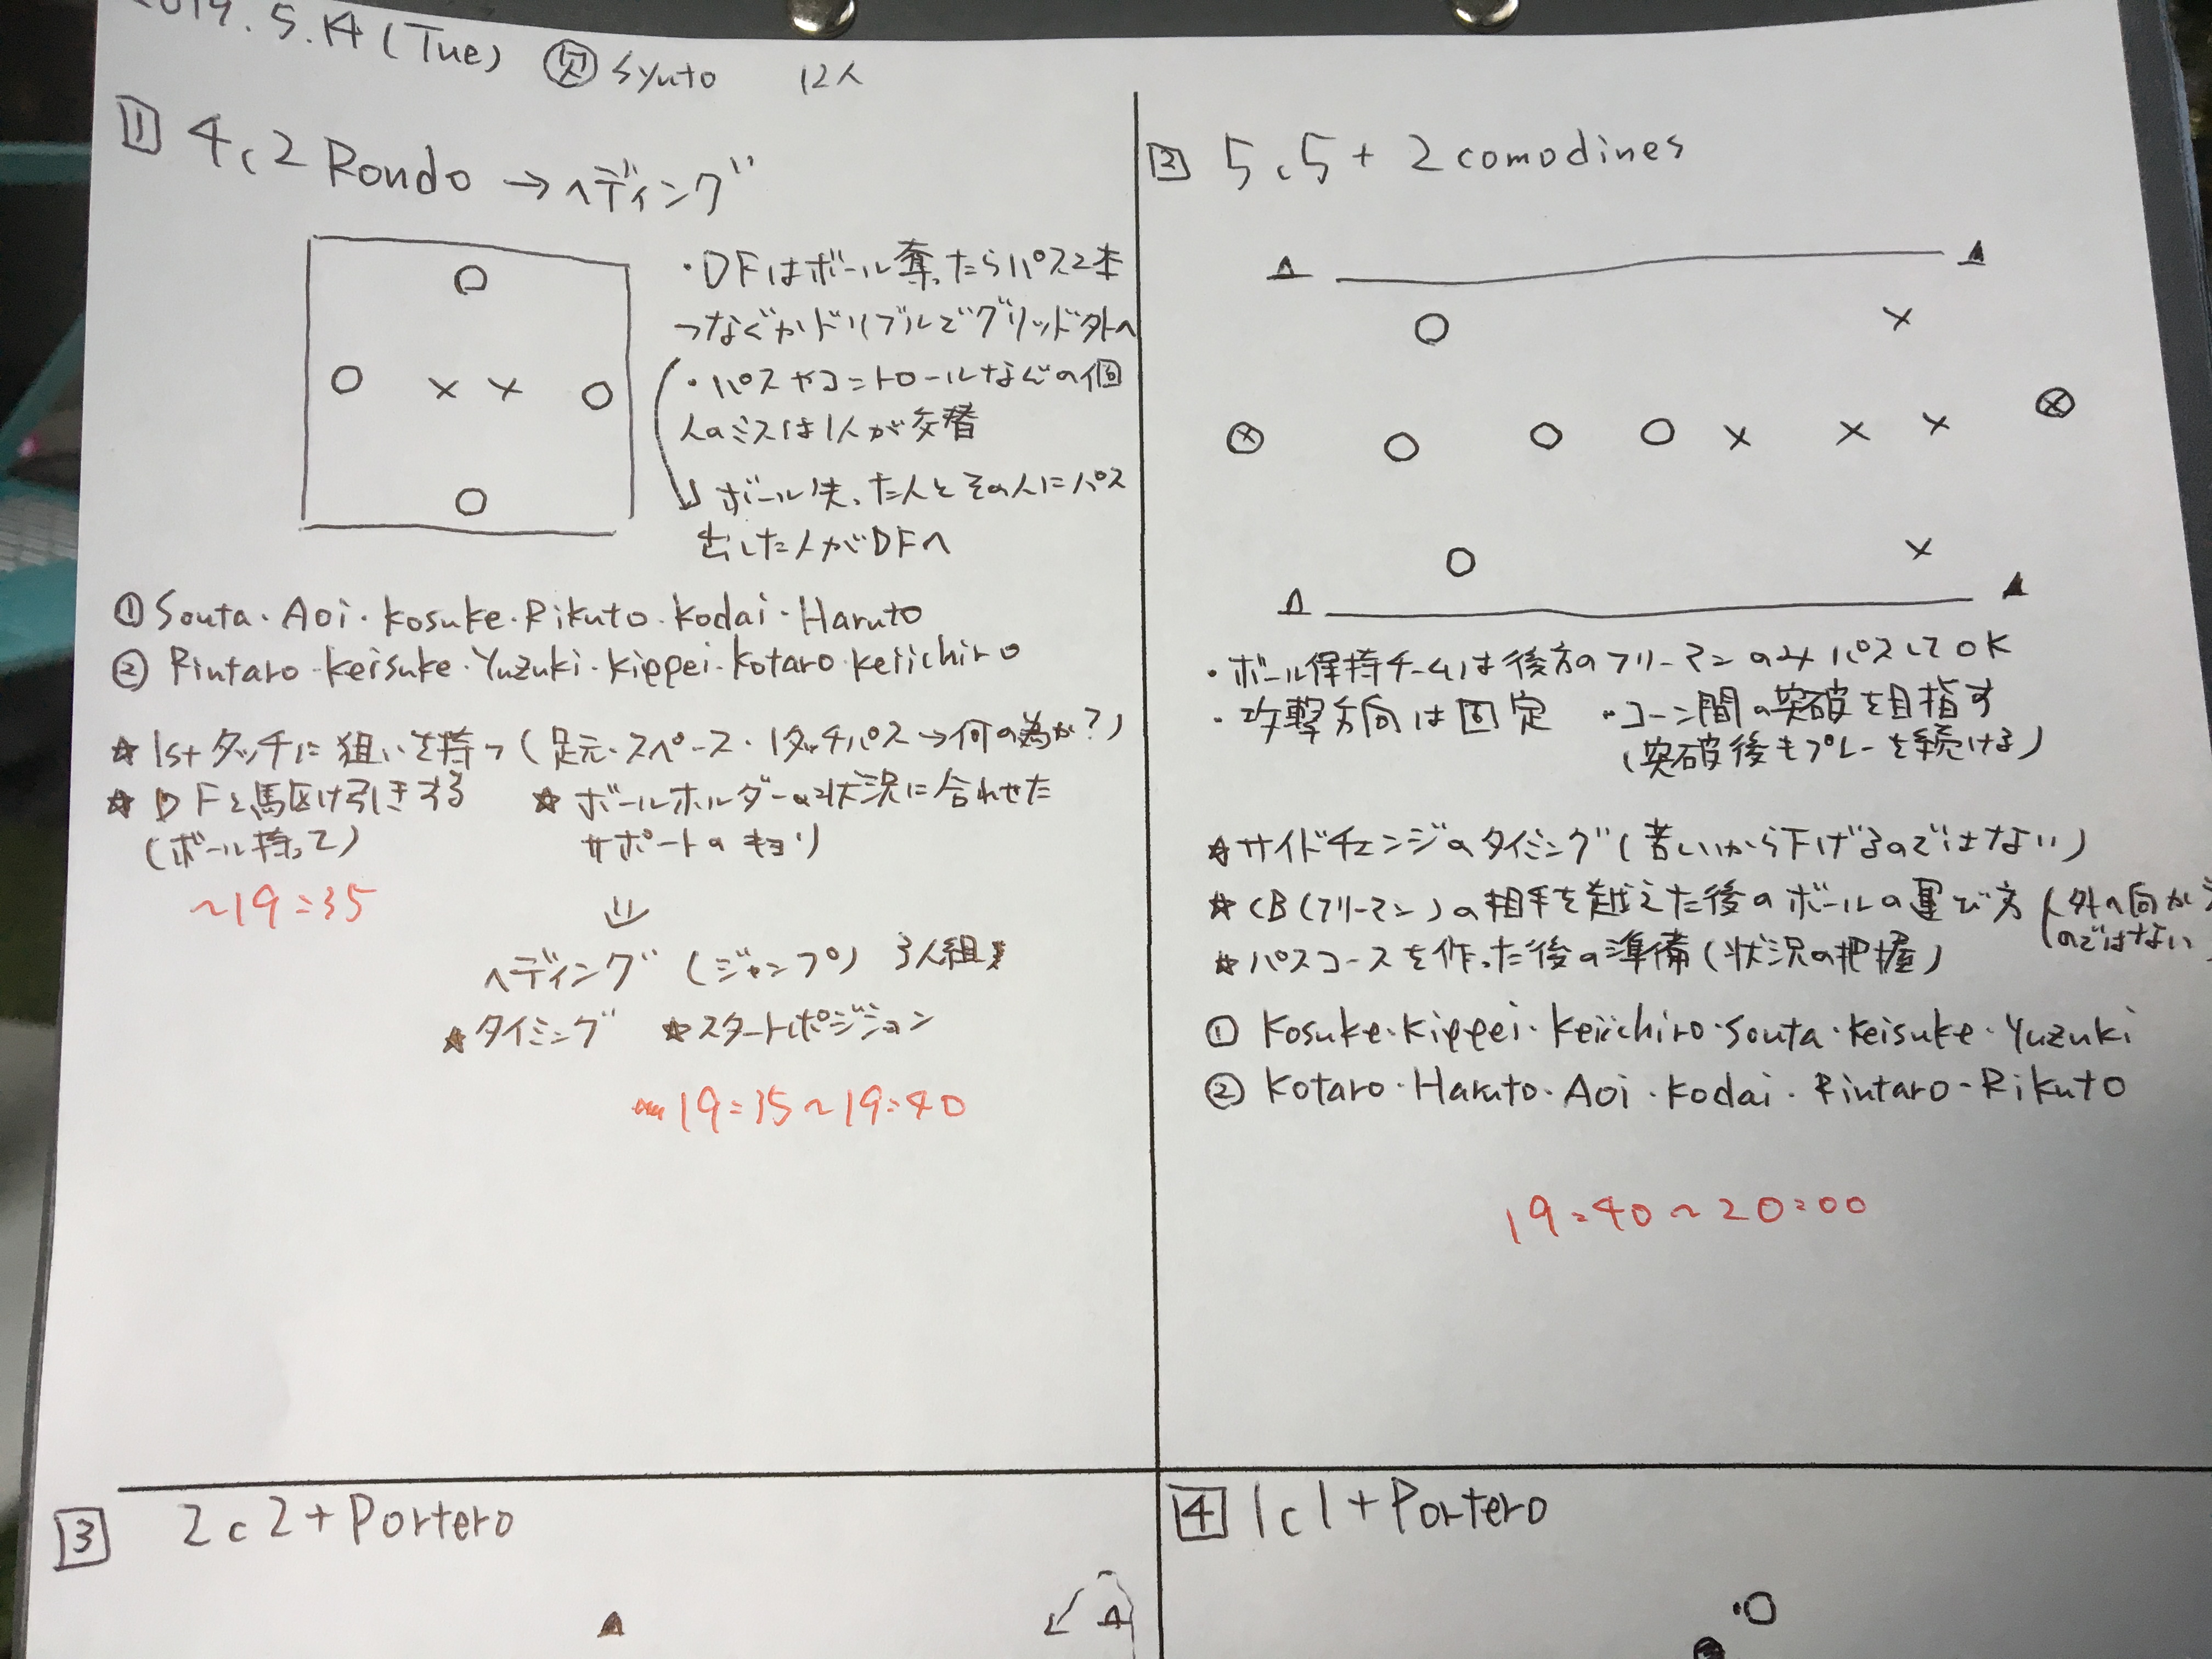 2019.5.14(Tue) 欠 Syuto 12人
1 4c2 Rondo →ヘディング
・DFはボール奪ったらパス2本
つなぐかドリブルでグリッド外へ
・パスやコントロールなどの個
人のミスは1人が交替
ボール失った人とその人にパス
出した人がDFへ
① Souta・Aoi・Kosuke・Rikuto・Kodai・Haruto
② Rintaro・Keisuke・Yuzuki・Kippei・Kotaro・Keiichiro
☆1stタッチに狙いを持つ(足元・スペース・1タッチパス→何の為か?)
☆DFと駆け引きする
(ボール持って)
☆ボールホルダーの状況に合わせた
サポートのキョリ
~19:35
ヘディング(ジャンプ) 3人組
☆タイミング ☆スタートポジション
19:35~19:40
2 5c5+2comodines
・ボール保持チームは後方のフリーマンのみパスしてOK
・攻撃方向は固定 ・コーン間の突破を目指す
(突破後もプレーを続ける)
☆サイドチェンジのタイミング(苦しいから下げるのではない)
☆CB(フリーマン)の相手を越えた後のボールの運び方(外へ向かう
のではない)
☆パスコースを作った後の準備(状況の把握)
① Kosuke・Kippei・Keiichiro・Souta・Keisuke・Yuzuki
② Kotaro・Haruto・Aoi・Kodai・Rintaro・Rikuto
19:40~20:00
3 2c2+Portero
4 1c1+Portero